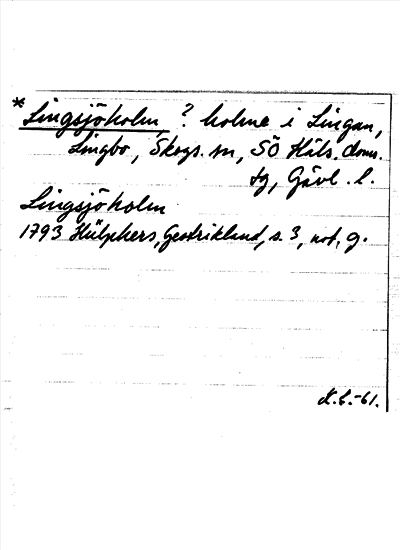 * Lingsjöholm, ? holme i Lingan,
Lingbo, Skogs sn, SÖ Häls. doms.
tg, Gävl. l.
Lingsjöholm
1793 Hülphers, Gestrikland, s. 3, not. g.
K.L.-61.